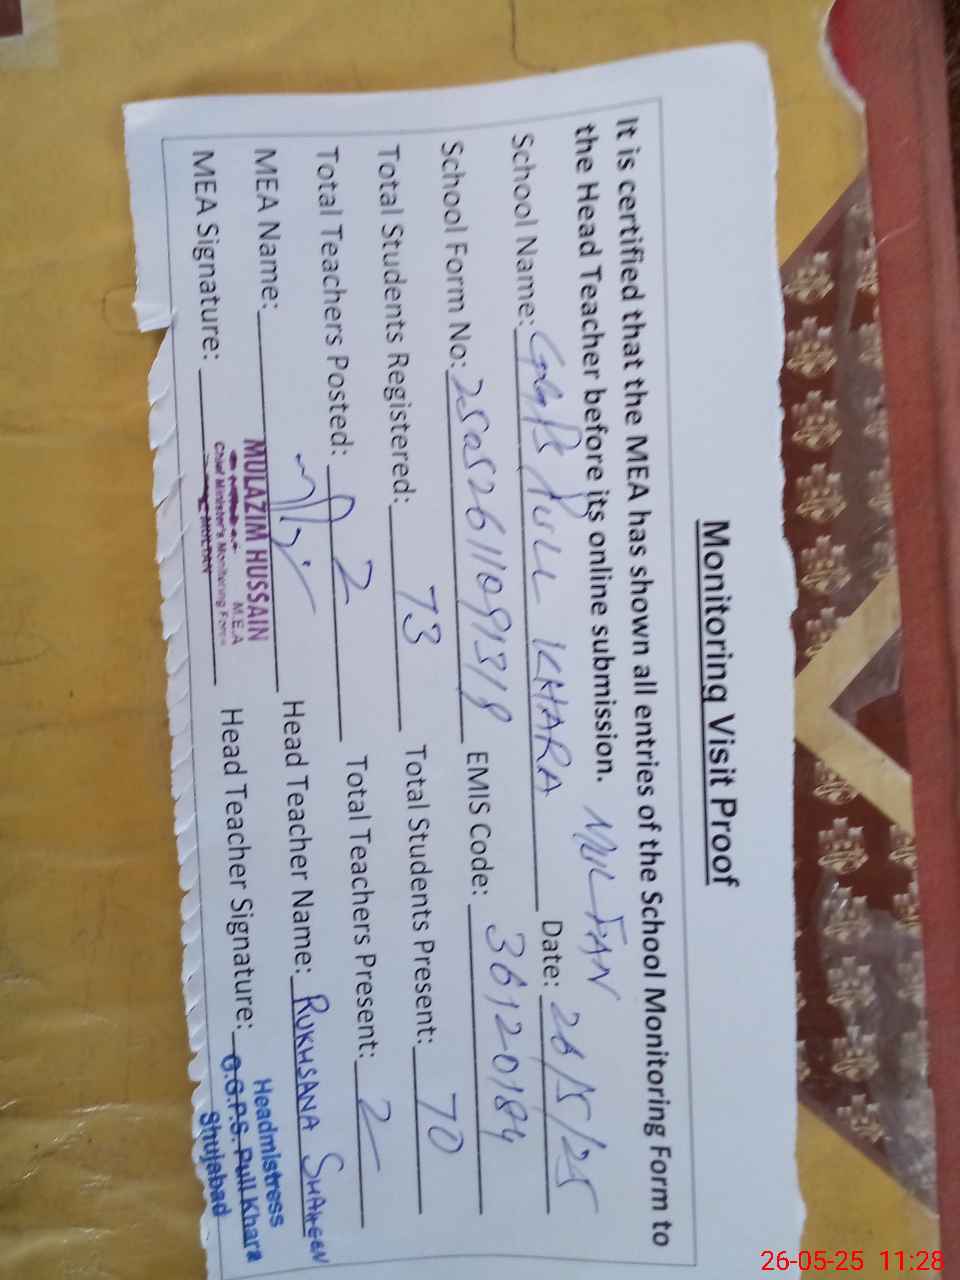 Monitoring Visit Proof
It is certified that the MEA has shown all entries of the School Monitoring Form to
the Head Teacher before its online submission. MULTAN
School Name: GGPS PULL KHARA Date: 26/5/25
School Form No: 25052611091318 EMIS Code: 36120184
Total Students Registered: 73 Total Students Present: 70
Total Teachers Posted: 2 Total Teachers Present: 2
MEA Name: MULAZIM HUSSAIN Head Teacher Name: RUKHSANA SHAHEEN
M.E.A
Chief Minister's Monitoring Force
MULTAN
MEA Signature: Head Teacher Signature:
Headmistress
G.G.P.S. Pull Khara
Shujabad
26-05-25 11:28